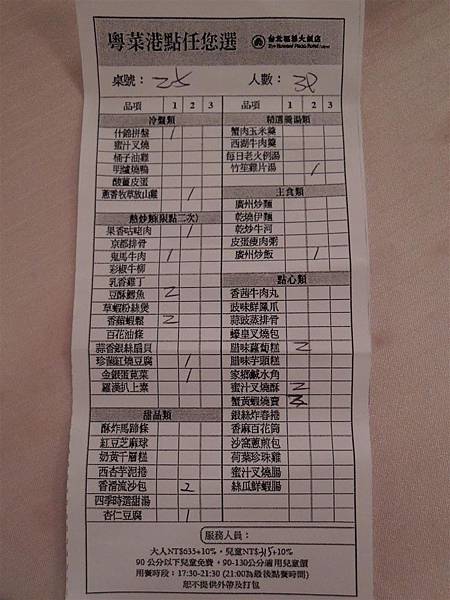 粵菜港點任您選 台北福華大飯店
桌號： 25 人數： 3P
品項 1 2 3
冷盤類
什錦拼盤 1
蜜汁叉燒
桶子油雞
明爐燒鴨
酸薑皮蛋
蔥香牧草放山雞 1
熱炒類(限點二次)
果香咕咾肉 1
京都排骨
鬼馬牛肉 1
彩椒牛柳
乳香雞丁
豆酥鱈魚 2
草蝦粉絲煲
香蘋蝦鬆 2
百花油條
蒜香銀絲扇貝
珍菌紅燒豆腐 1
金銀蛋莧菜 1
羅漢扒上素
甜品類
酥炸馬蹄條
紅豆芝麻球
奶黃千層糕
西杏芋泥捲
香滑流沙包 2
四季時選甜湯
杏仁豆腐 1
品項 1 2 3
精選羹湯類
蟹肉玉米羹
西湖牛肉羹
每日老火例湯
竹笙雞片湯 1
主食類
廣州炒麵
乾燒伊麵
乾炒牛河
皮蛋瘦肉粥
廣州炒飯 1
點心類
香茜牛肉丸
豉味鮮鳳爪
蒜豉蒸排骨
蠔皇叉燒包
腊味蘿蔔糕 2
腊味芋頭糕
家鄉鹹水角
蜜汁叉燒酥 2
蟹黃蝦燒賣
銀絲炸春捲
香麻百花筒
沙窩蔥煎包
荷葉珍珠雞
蜜汁叉燒腸
絲瓜鮮蝦腸
服務人員：
大人NT$635+10%，兒童NT$315+10%
90公分以下兒童免費，90-130公分適用兒童價
用餐時段：17:30-21:30 (21:00為最後點餐時間)
恕不提供外帶及打包